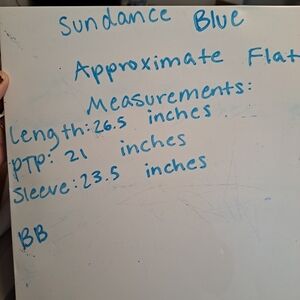 Sundance Blue
Approximate Flat
Measurements:
Length: 26.5 inches
PTP: 21 inches
Sleeve: 23.5 inches
BB